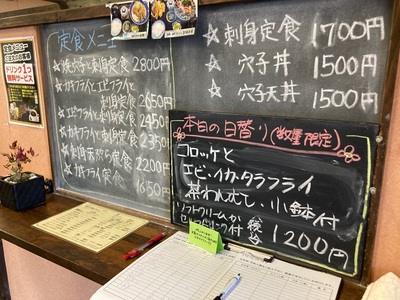 定食メニュー
ドリンク1つ
無料サービス
定食メニュー
☆焼穴子と刺身定食 2800円
☆カキフライとエビフライと
刺身定食 2650円
☆エビフライと刺身定食 2450円
☆カキフライと刺身定食 2350円
☆刺身天ぷら定食 2200円
☆カキフライ定食 1650円
☆刺身定食 1700円
☆穴子丼 1500円
☆穴子天丼 1500円
本日の日替り(数量限定)
コロッケと
エビ・イカ・タラフライ
茶わんむし・小鉢付
ソフトクリームか
ドリンク付 税込 1200円